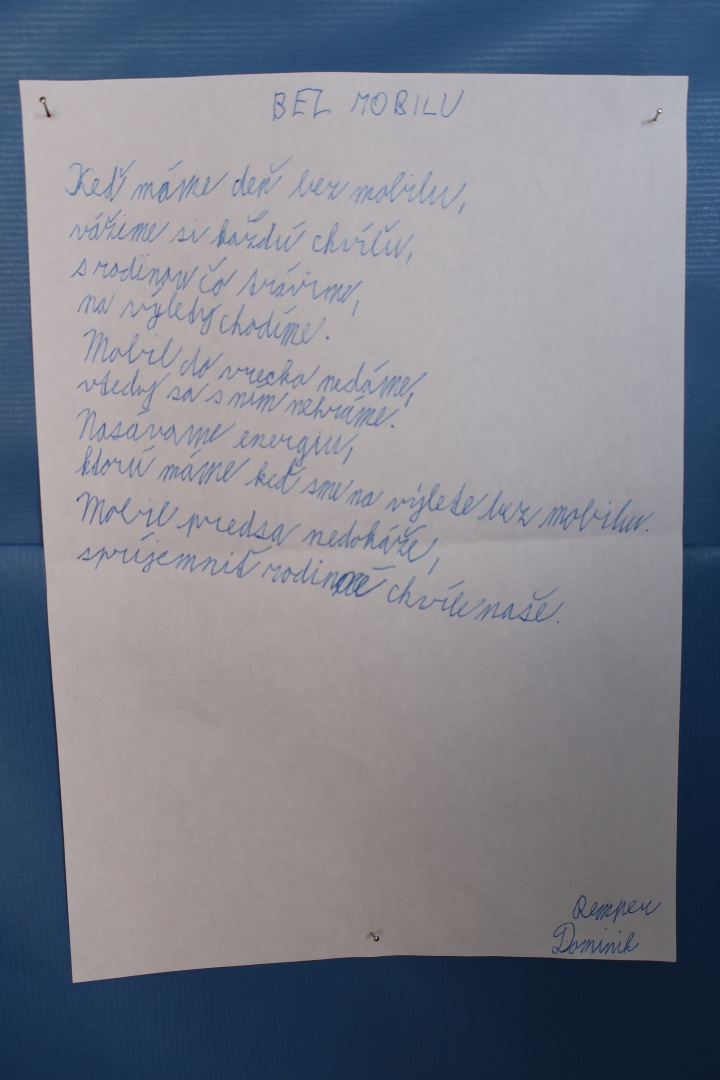 BEZ MOBILU
Keď máme deň bez mobilu,
vážime si každú chvíľu,
s rodinou čo trávime,
na výlety chodíme.
Mobil do vrecka nedáme,
vtedy sa s ním nehráme.
Nasávame energiu,
ktorú máme keď sme na výlete bez mobilu.
Mobil predsa nedokáže,
spríjemniť rodinné chvíle naše.
Dominik